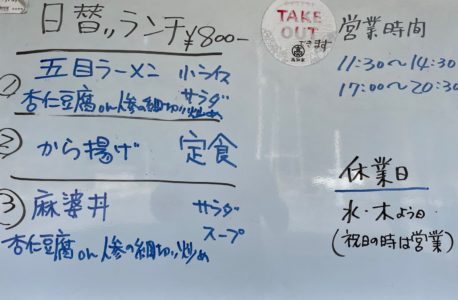 日替ランチ ¥800-
① 五目ラーメン 小ライス
杏仁豆腐or人参の細切り炒め サラダ
② から揚げ 定食
③ 麻婆丼 サラダ
スープ
杏仁豆腐or人参の細切り炒め
TAKE
OUT
できます
営業時間
11:30〜14:30
17:00〜20:30
休業日
水・木よう日
(祝日の時は営業)